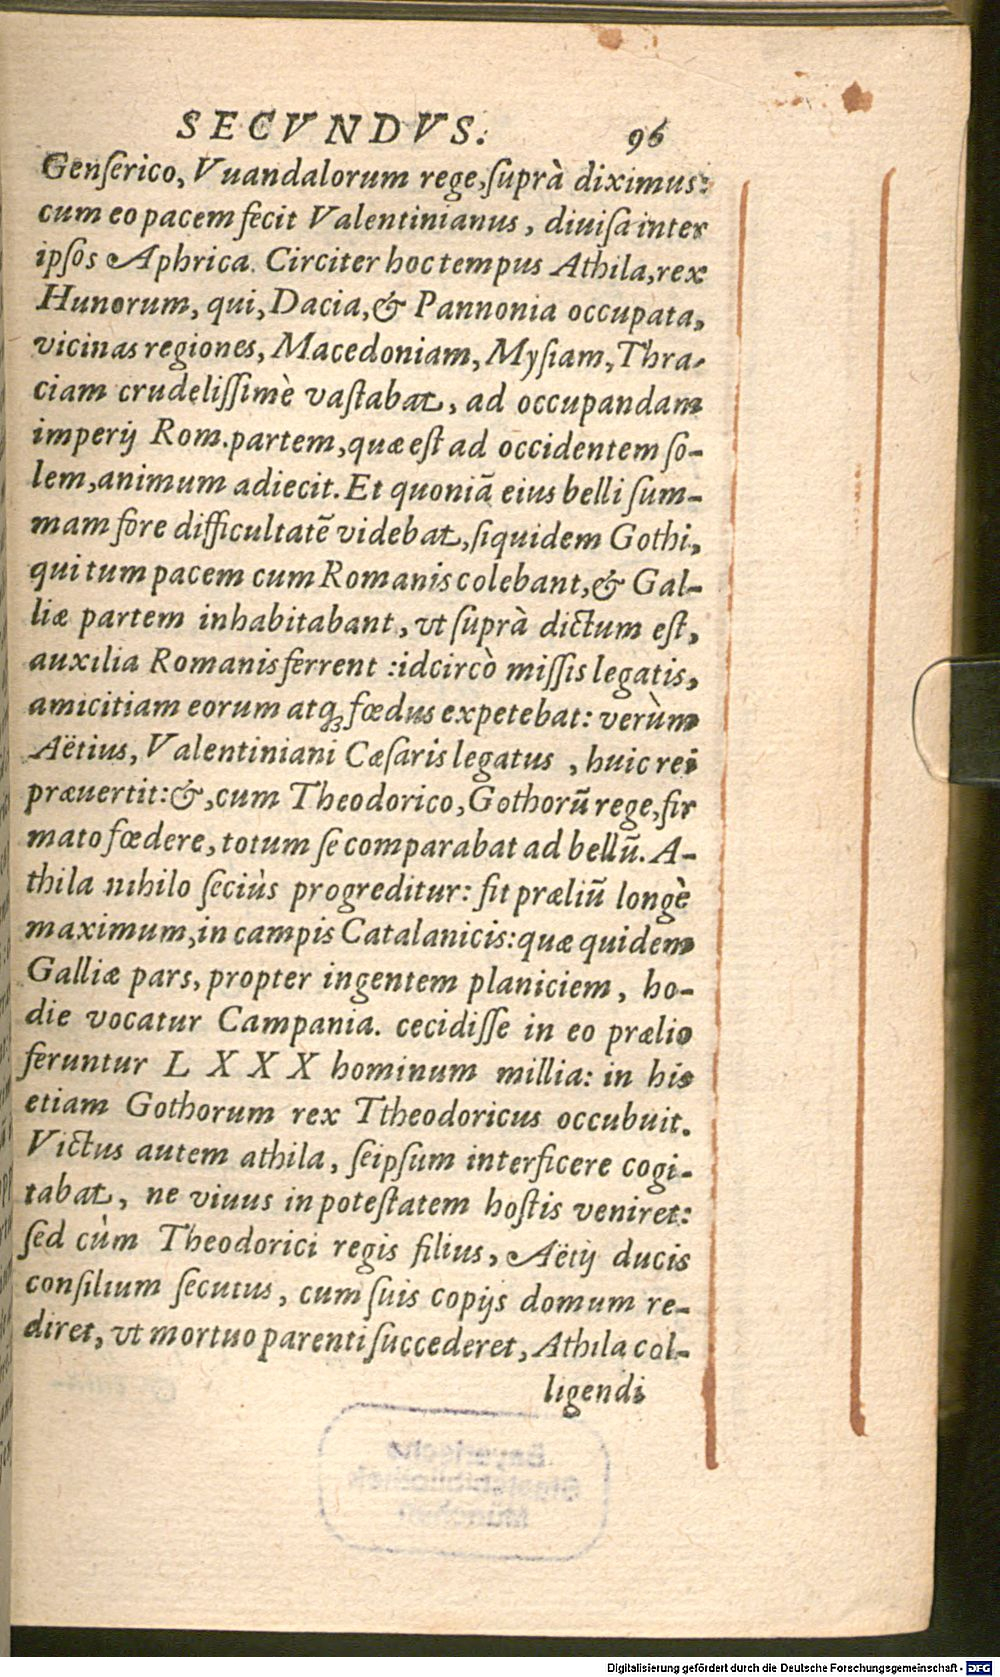 SECVNDVS. 96
Genſerico, Vuandalorum rege, ſuprà diximus:
cum eo pacem fecit Valentinianus, diuiſa inter
ipſos Aphrica. Circiter hoc tempus Athila, rex
Hunorum, qui, Dacia, & Pannonia occupata,
vicinas regiones, Macedoniam, Myſiam, Thra-
ciam crudeliſſimè vaſtabat, ad occupandam
imperij Rom. partem, quæ eſt ad occidentem ſo-
lem, animum adiecit. Et quoniã eius belli ſum-
mam fore difficultatẽ videbat, ſiquidem Gothi,
qui tum pacem cum Romanis colebant, & Gal-
liæ partem inhabitabant, vt ſuprà dictum eſt,
auxilia Romanis ferrent: idcircò miſſis legatis,
amicitiam eorum atq; fœdus expetebat: verùm
Aëtius, Valentiniani Cæſaris legatus, huic rei
præuertit: &, cum Theodorico, Gothorũ rege, fir
mato fœdere, totum ſe comparabat ad bellũ. A-
thila nihilo ſeciùs progreditur: fit præliũ longè
maximum, in campis Catalanicis: quæ quidem
Galliæ pars, propter ingentem planiciem, ho-
die vocatur Campania. cecidiſſe in eo prælio
feruntur LXXX hominum millia: in his
etiam Gothorum rex Ttheodoricus occubuit.
Victus autem athila, ſeipſum interficere cogi-
tabat, ne viuus in poteſtatem hoſtis veniret:
ſed cùm Theodorici regis filius, Aëtij ducis
conſilium ſecutus, cum ſuis copijs domum re-
diret, vt mortuo parenti ſuccederet, Athila col-
ligendi
Bayerische
Staatsbibliothek
München
Digitalisierung gefördert durch die Deutsche Forschungsgemeinschaft - DFG